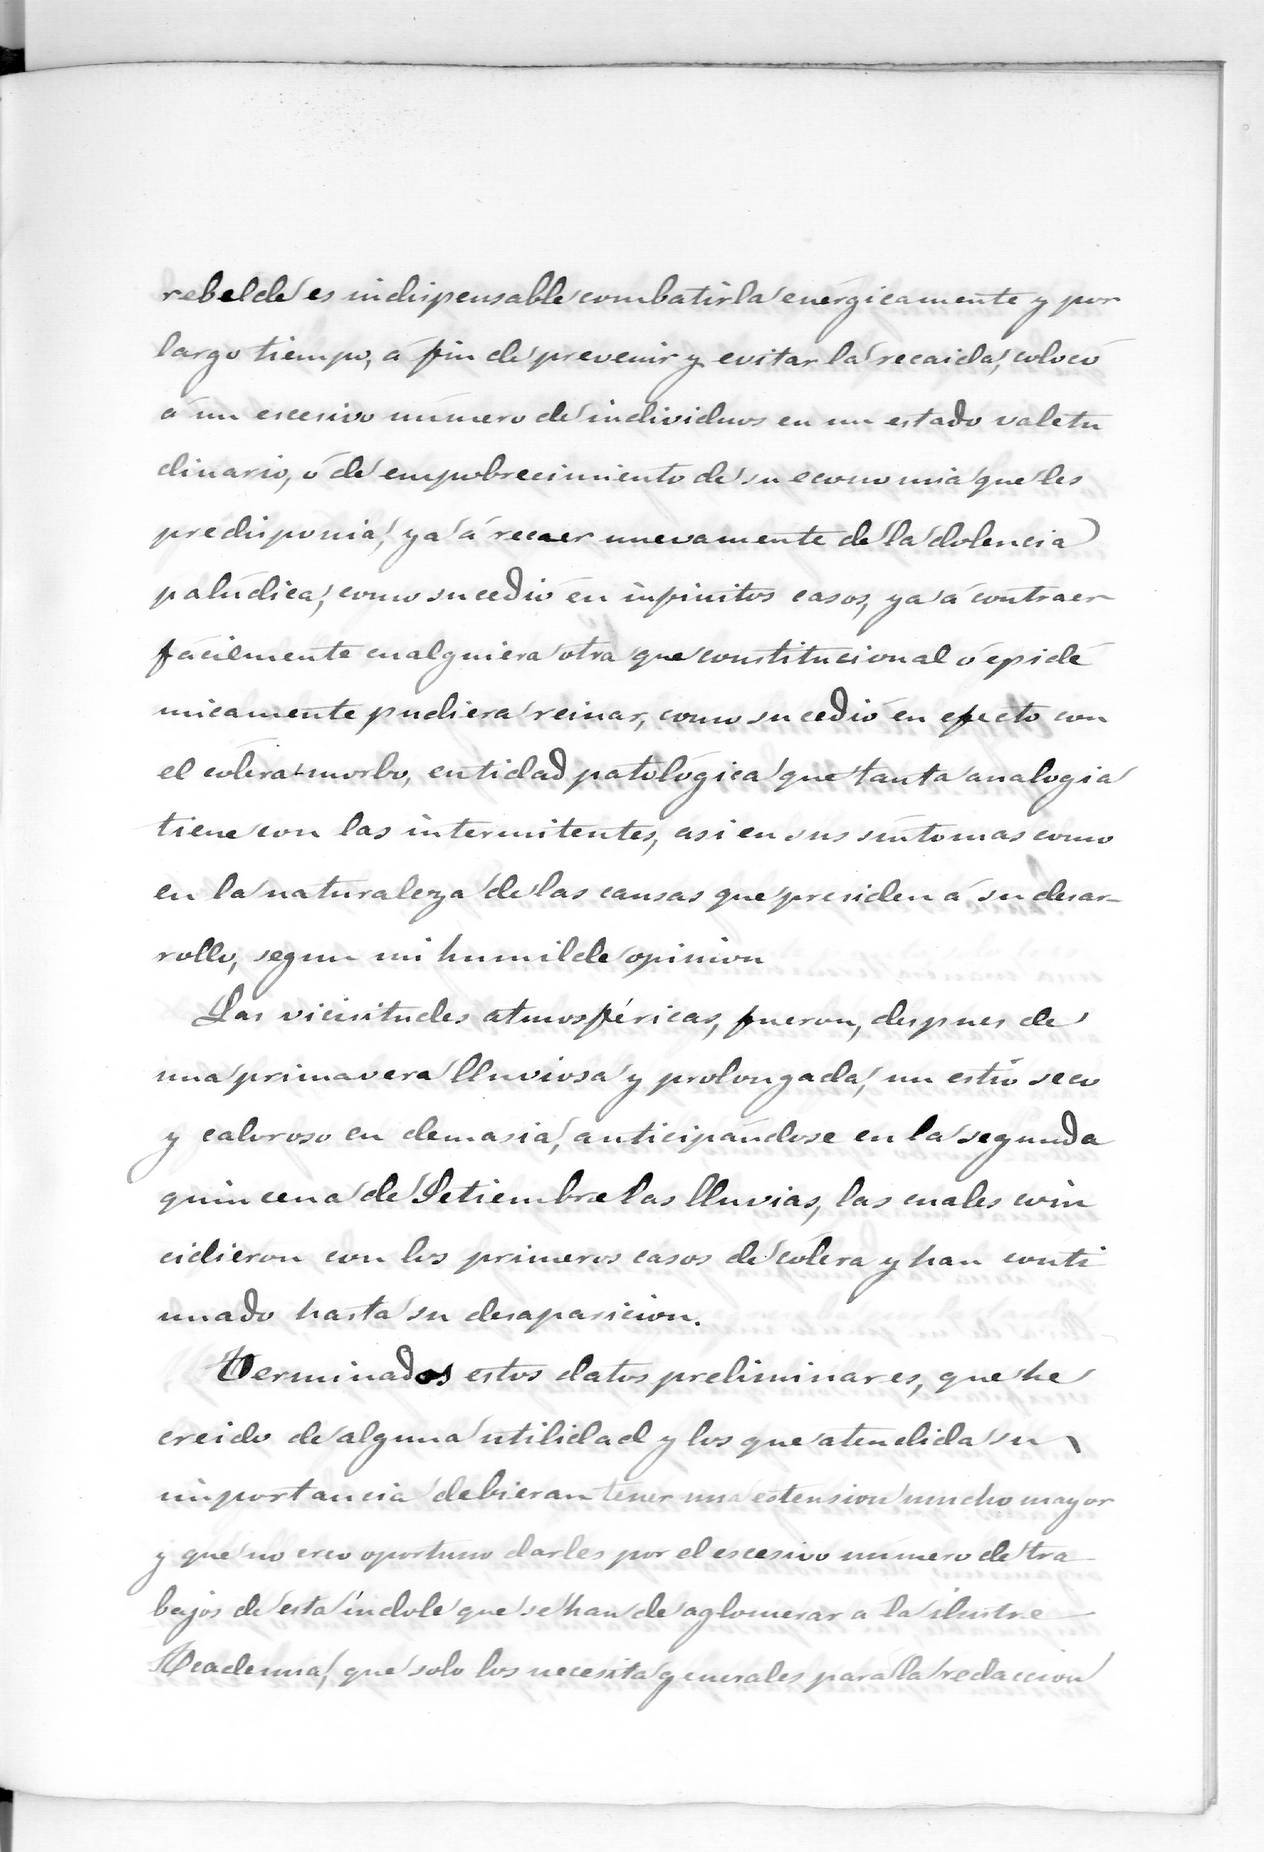 rebelde es indispensable combatirla enérgicamente y por
largo tiempo, á fin de prevenir y evitar la recaida, colocó
á un escesivo número de individuos en un estado valetu
dinario, ó de empobrecimiento de su economia que les
predisponia, ya á recaer nuevamente de la dolencia
palúdica, como sucedió en infinitos casos, ya á contraer
fácilmente cualquiera otra que constitucional ó epidé
micamente pudiera reinar, como sucedió en efecto con
el cólera-morbo, entidad patológica que tanta analogia
tiene con las intermitentes, asi en sus síntomas como
en la naturaleza de las causas que presiden á su desar-
rollo, segun mi humilde opinion
Las vicisitudes atmosféricas, fueron, despues de
una primavera lluviosa y prolongada, un estio seco
y caloroso en demasia, anticipándose en la segunda
quincena de Setiembre las lluvias, las cuales coin
cidieron con los primeros casos de cólera y han conti
nuado hasta su desaparicion.
Terminados estos datos preliminares, que he
creido de alguna utilidad y los que atendida su
importancia debieran tener una estension mucho mayor
y que no creo oportuno darles por el escesivo numero de tra
bajos de esta índole que se han de aglomerar a la ilustre
Academia, que solo los necesita generales para la redaccion